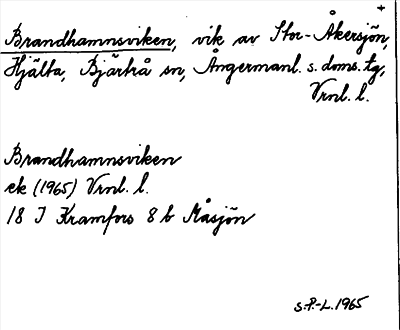 +
Brandhamnsviken, vik av Stor-Åkersjön,
Hjälta, Bjärtrå sn, Ångermanl. s. doms. tg,
Vrnl. l.
Brandhamnsviken
ek (1965) Vrnl. l.
18 I Kramfors 8 b Måsjön
S.P.-L. 1965